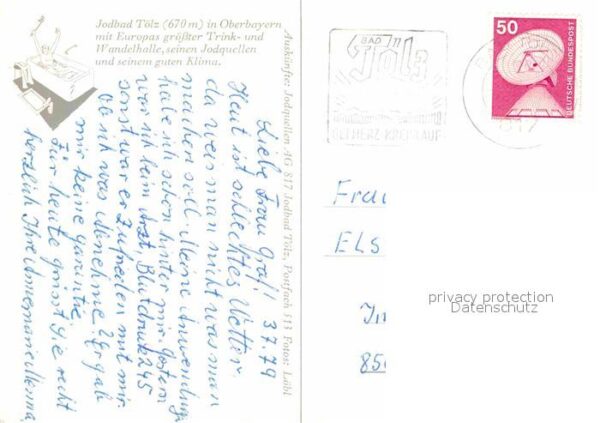 Jodbad Tölz (670 m) in Oberbayern
mit Europas größter Trink- und
Wandelhalle, seinen Jodquellen
und seinem guten Klima.
Auskünfte: Jodquellen AG 817 Jodbad Tölz, Postfach 513 Fotos: Löbl
3.7.79
Liebe Frau Graf!
Heut ist schlechtes Wetter
da weis man nicht was man
machen soll. Meine Anwendung
habe ich schon hinter mir. Gestern
war ich beim Arzt Blutdruck 245
sonst war er zufrieden mit mir.
Ob ich was abnehme? Er gab
mir keine garintie.
Für heute grüsst Sie recht
herzlich Ihre Annemarie
BAD
Tölz
BEI HERZ-KREISLAUF
817
50
DEUTSCHE BUNDESPOST
Frau
Els
In
850
privacy protection
Datenschutz